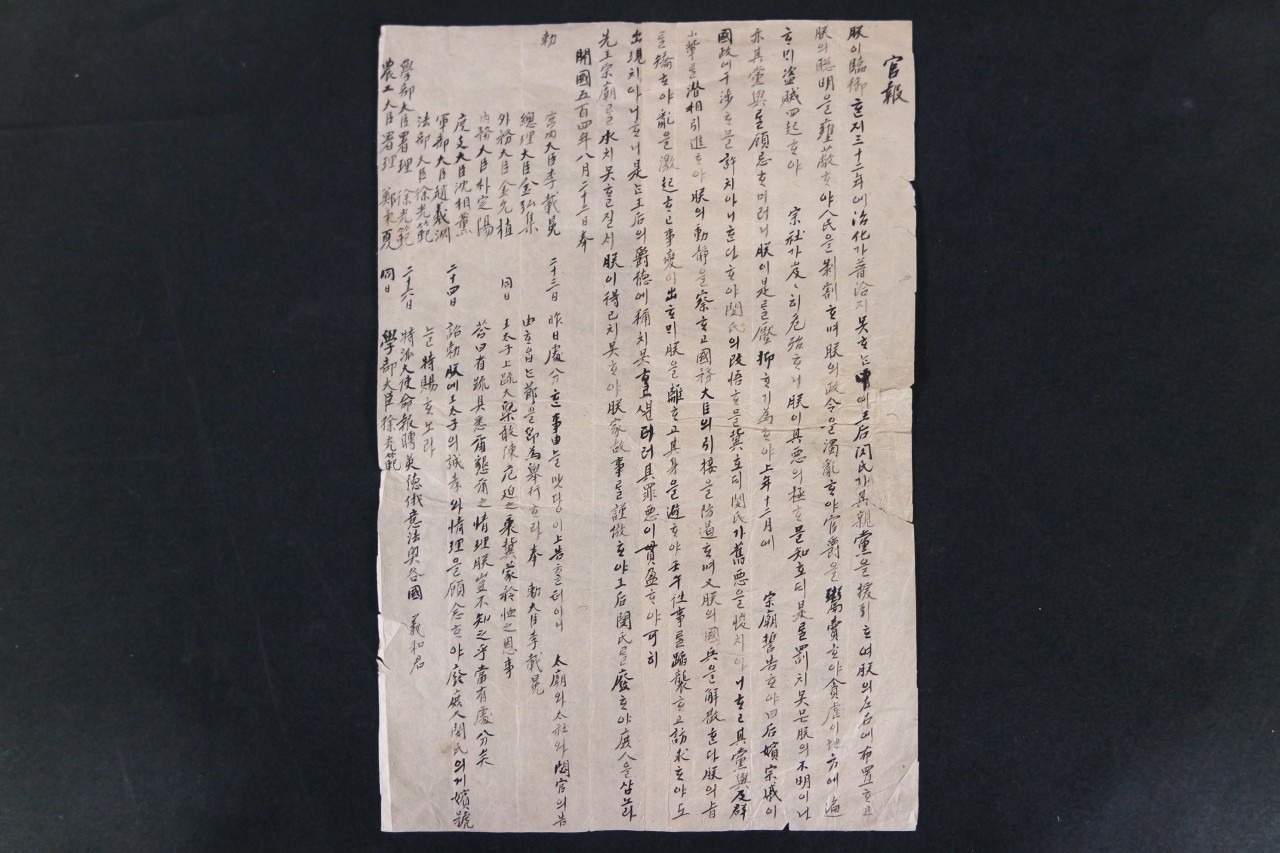 官報
朕이臨御ᄒᆞᆫ지三十二年에治化가普洽지못ᄒᆞᆫ中에王后閔氏가其親黨을援引ᄒᆞ여朕의左右에布置ᄒᆞ고
朕의聰明을壅蔽ᄒᆞ야人民을剝割ᄒᆞ며朕의政令을濁亂ᄒᆞ야官爵을鬻賣ᄒᆞ야貪虐이地方에遍
ᄒᆞ믹盜賊四起ᄒᆞ야 宗社가岌〻히危殆ᄒᆞ니朕이其惡의極ᄒᆞ믈知ᄒᆞ되是를罰치못믄朕의不明이나
亦其黨與를顧忌ᄒᆞ미러니朕이是를壓抑ᄒᆞ기爲ᄒᆞ야上年十二月에 宗廟誓告ᄒᆞ야曰后嬪宗戚이
國政에干涉ᄒᆞ믈許치아니ᄒᆞᆫ다ᄒᆞ야閔氏의改悟ᄒᆞ믈冀ᄒᆞ되閔氏가舊惡을悛치아니ᄒᆞ고其黨與及群
小輩를潛相引進ᄒᆞ야朕의動靜을察ᄒᆞ고國務大臣의引接을防遏ᄒᆞ며又朕의國兵을解散ᄒᆞᆫ다朕의旨
를矯ᄒᆞ야亂을激起ᄒᆞ고事變이出ᄒᆞ믹朕을離ᄒᆞ고其身을避ᄒᆞ야壬午往事를蹈襲ᄒᆞ고訪求ᄒᆞ야도
出現치아니ᄒᆞ니是ᄂᆞᆫ王后의爵德에稱치못ᄒᆞᆯᄲᅮᆫ더러其罪惡이貫盈ᄒᆞ야可히
先王宗廟를承치못ᄒᆞᆯ질ᄉᆡ朕이得已치못ᄒᆞ야朕家故事를謹倣ᄒᆞ야王后閔氏를廢ᄒᆞ야庶人을삼노라
開國五百四年八月二十二日奉
勅
宮內大臣李載冕
總理大臣金弘集
外務大臣金允植
內務大臣朴定陽
度支大臣沈相薰
軍部大臣趙羲淵
法部大臣徐光範
學部大臣署理 徐光範
農工大臣署理 鄭秉夏
二十三日 昨日處分ᄒᆞᆫ事由ᄂᆞᆫ맛당이上告ᄒᆞᆯ터이니 太廟와太社와閟宮의告
由ᄒᆞ옵ᄂᆞᆫ節을卽爲擧行ᄒᆞ라奉 勅大臣李載冕
同日 王太子上疏大槩敢陳危迫之衷冀蒙矜恤之恩事
答曰有疏具悉爾懇爾之情理朕豈不知之乎當有處分矣
二十四日 詔勅朕에王太子의誠孝와情理을顧念ᄒᆞ야廢庶人閔氏의게嬪號
를特賜ᄒᆞ노라
二十六日 特派大使命報聘英德俄意法奧各國 義和君
同日 學部大臣徐光範